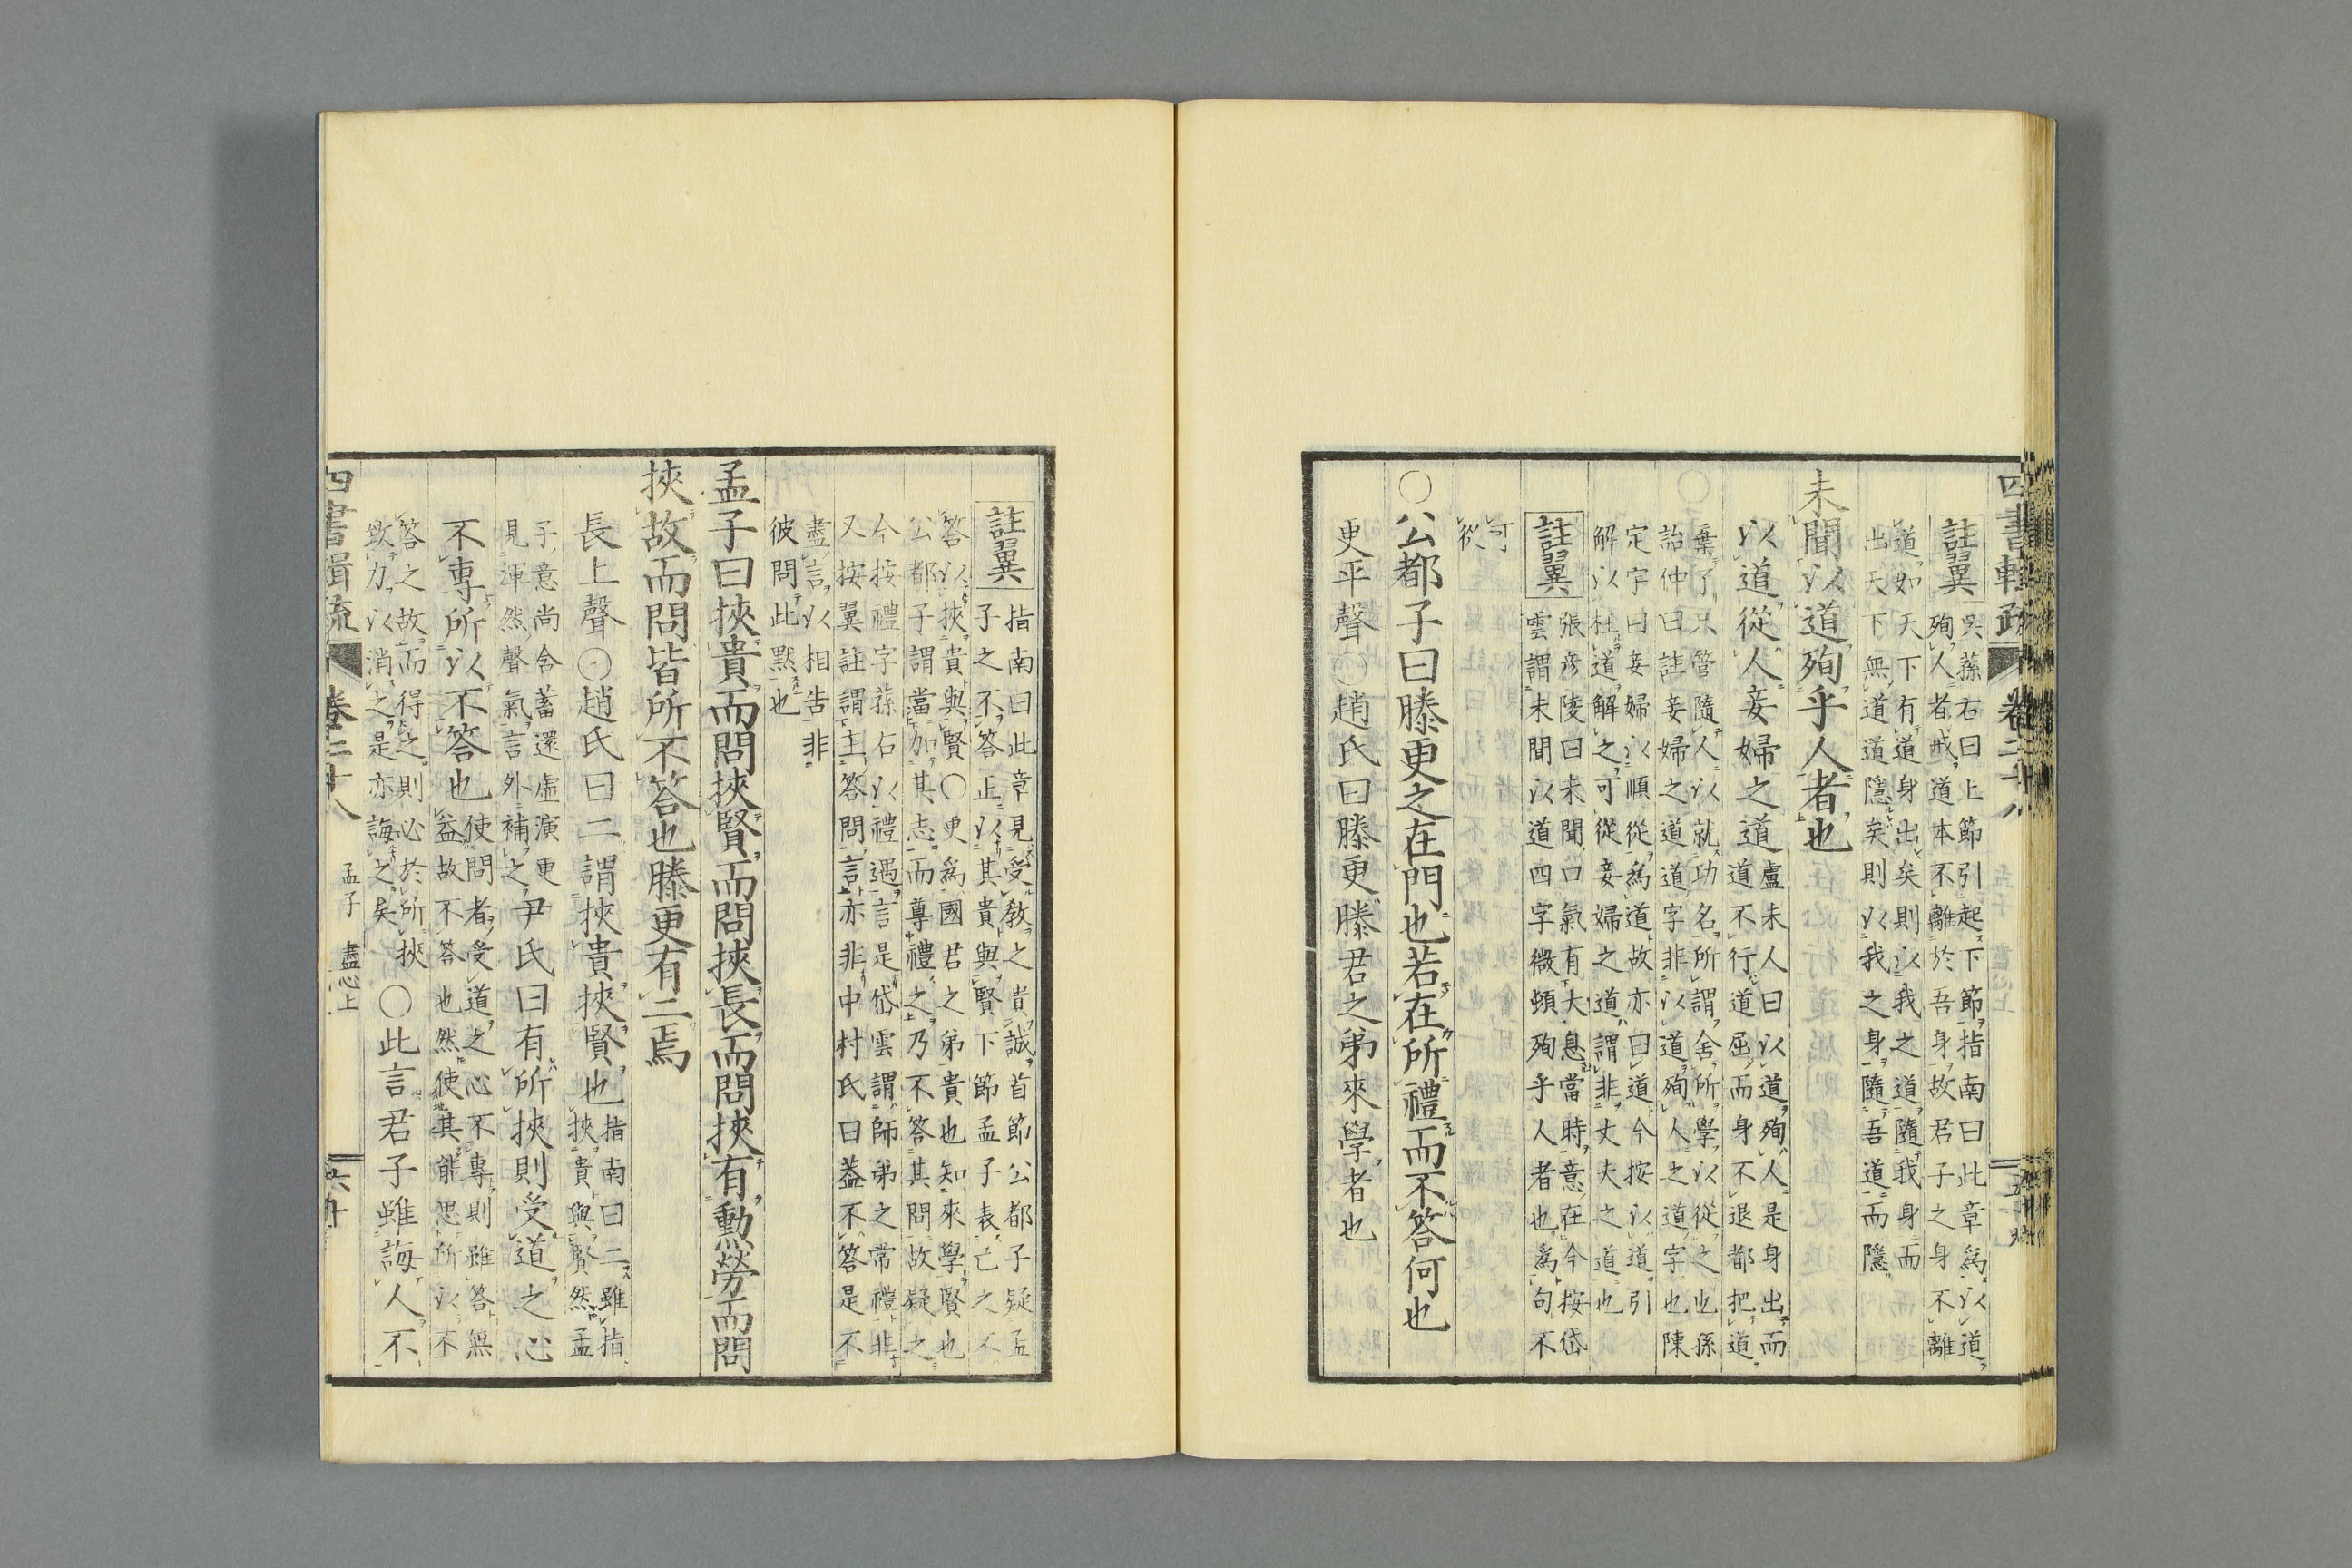 四書輯疏 卷二十八
註翼
呉蓀右曰上節引起下節指南曰此章爲以道
殉人者戒道本不離於吾身故君子之身不離
道如天下有道身出矣則以我之道隨我身而
出天下無道道隱矣則以我之身隨吾道而隱
未聞以道殉乎人者也
以道從人妾婦之道
盧未人曰以道殉人是身出而
道不行道屈而身不退都把道
棄了只管隨人以就功名所謂舍所學以從之也孫
詒仲曰註妾婦之道道字非以道殉人之道字也陳
定宇曰妾婦以順從爲道故亦曰道今按以道引
解以枉道解之可從妾婦之道謂非丈夫之道也
註翼
張彦陵曰未聞口氣有大息當時意在今按岱
雲謂未聞以道四字微頓殉乎人者也爲句不
可
從
○公都子曰滕更之在門也若在所禮而不答何也
更平聲○趙氏曰滕更滕君之弟來學者也
註翼
指南曰此章見受教之貴誠首節公都子疑孟
子之不答正以其貴與賢下節孟子表亡之不
答以挾貴與賢○更爲國君之弟貴也知來學賢也
公都子謂當加其志而尊禮之乃不答其問故疑之
今按禮字蓀右以禮遇言是岱雲謂師弟之常禮非
又按翼註謂主答問言亦非中村氏曰葢不答是不
盡言以相告非
彼問此默也
孟子曰挾貴而問挾賢而問挾長而問挾有勲勞而問
挾故而問皆所不答也滕更有二焉
長上聲○趙氏曰二謂挾貴挾賢也
指南曰二雖指
挾貴與賢然孟
子意尚含蓄還虛演更
見渾然聲氣言外補之
尹氏曰有所挾則受道之心
不專所以不答也
使問者受道之心不專則雖答無
益故不答也然使其能思所以不
答之故而得之則必於所挾
欵力以消之是亦誨之矣
○此言君子雖誨人不
四書輯疏 卷二十八 孟子 盡心上 六十